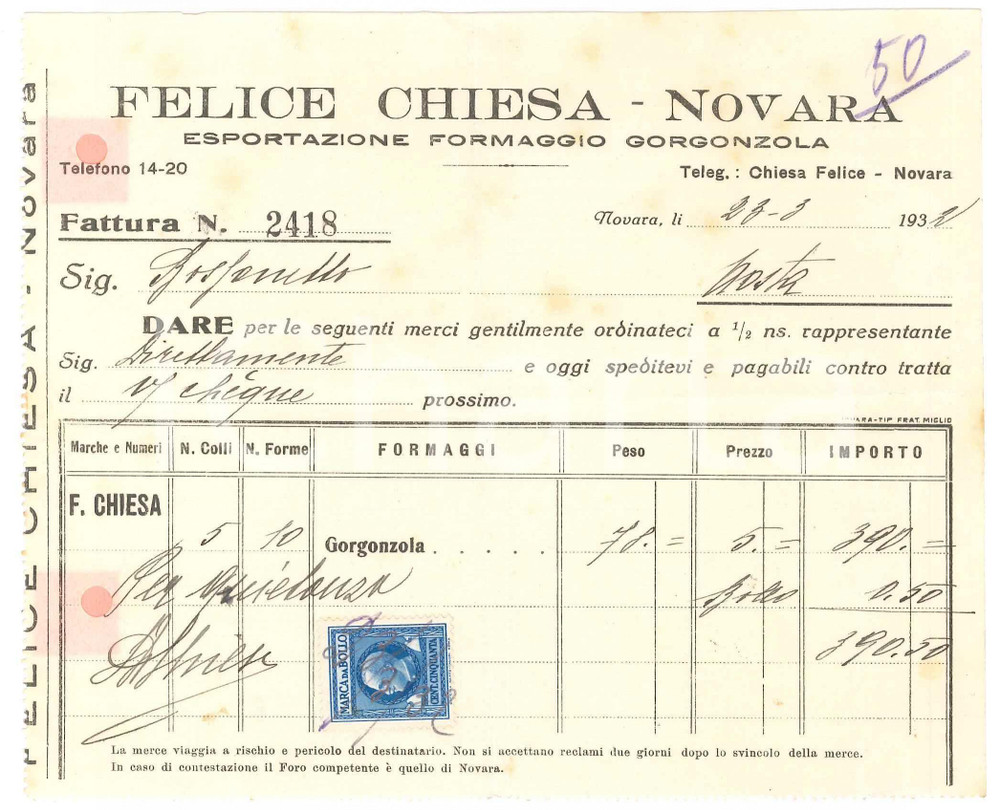 50
FELICE CHIESA - NOVARA
ESPORTAZIONE FORMAGGIO GORGONZOLA
Telefono 14-20
Teleg. : Chiesa Felice - Novara
Fattura N. 2418
Novara, li 23-3 1932
Sig. Aosta
DARE per le seguenti merci gentilmente ordinateci a ½ ns. rappresentante
Sig. Direttamente e oggi speditevi e pagabili contro tratta
il V/ chèque prossimo.
TIP. FRAT. MIGLIO
Marche e Numeri N. Colli N. Forme FORMAGGI Peso Prezzo IMPORTO
F. CHIESA
5 10 Gorgonzola . . . . . 78.= 5.= 390.=
Per quietanza Bollo 0.50
390.50
MARCA DA BOLLO
CENT. CINQUANTA
La merce viaggia a rischio e pericolo del destinatario. Non si accettano reclami due giorni dopo lo svincolo della merce.
In caso di contestazione il Foro competente è quello di Novara.
FELICE CHIESA - Novara